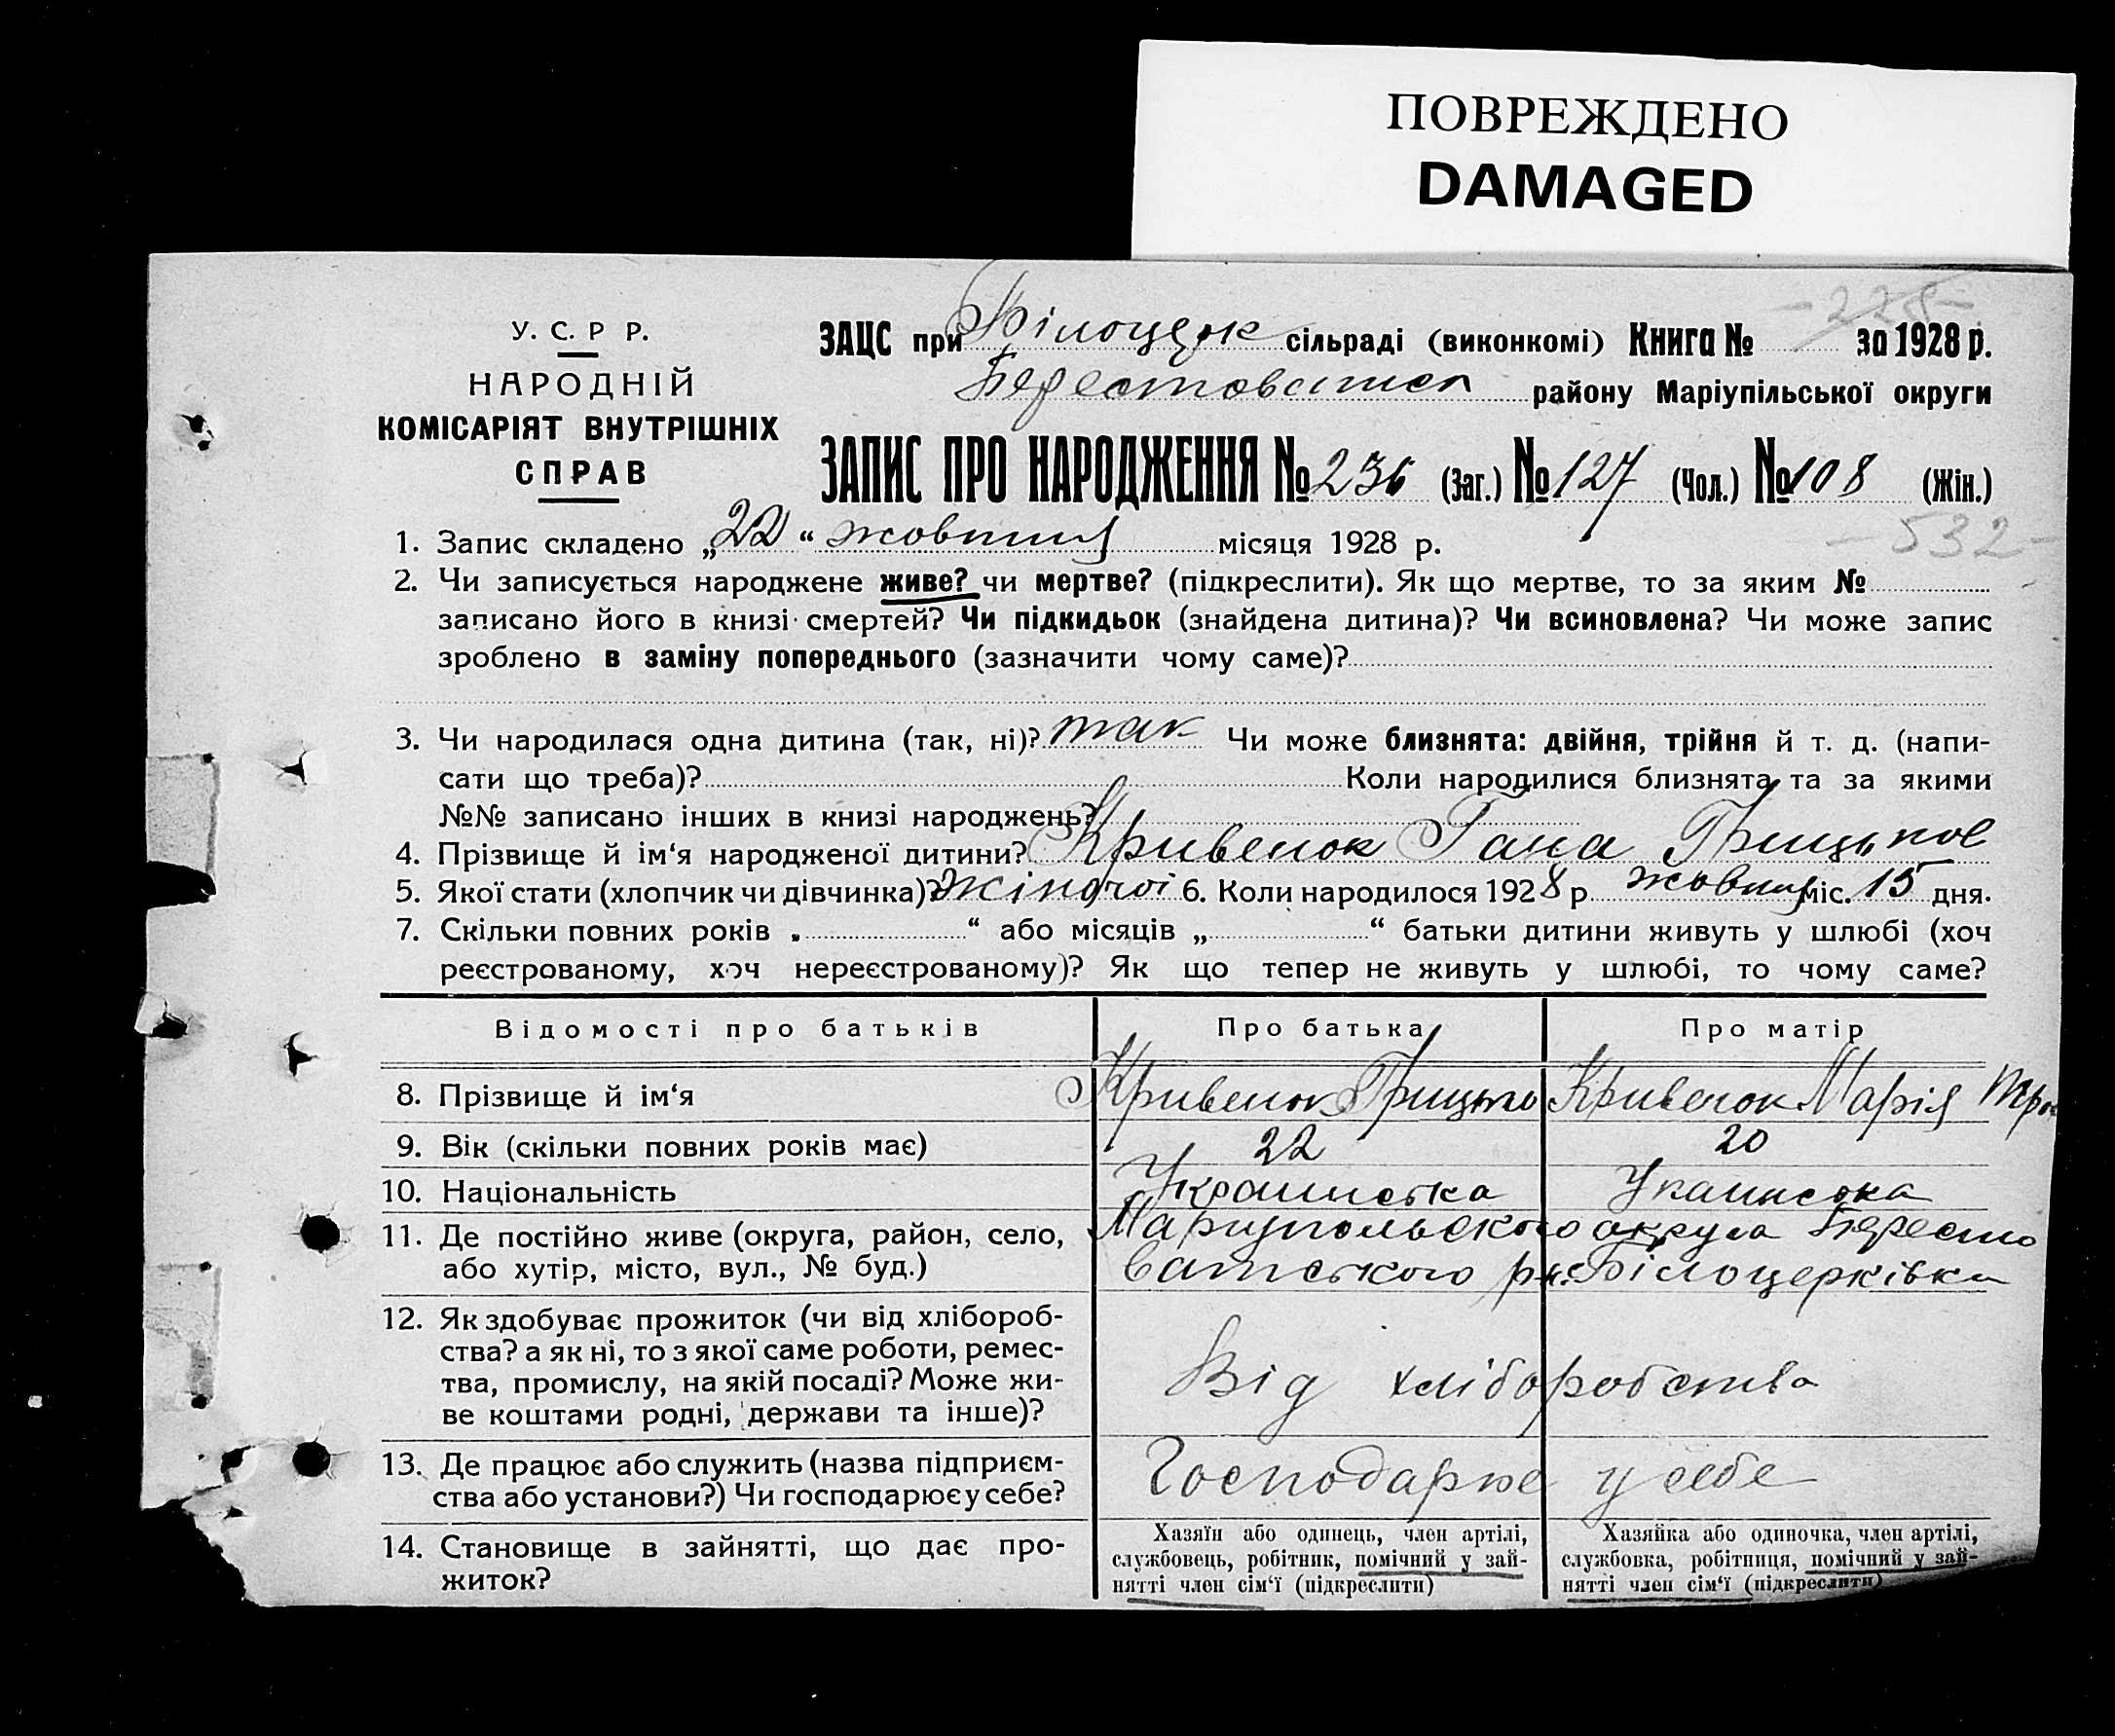 ПОВРЕЖДЕНО
DAMAGED
-228-
У. С. Р Р.
НАРОДНІЙ
КОМІСАРІЯТ ВНУТРІШНІХ
СПРАВ
ЗАЦС при Білоцерк сільраді (виконкомі) Книга № за 1928 р.
Берестоватск району Маріупільської округи
ЗАПИС ПРО НАРОДЖЕННЯ № 236 (Заг.) № 127 (Чол.) № 108 (Жін.)
-532-
1. Запис складено „22“ жовтня місяця 1928 р.
2. Чи записується народжене живе? чи мертве? (підкреслити). Як що мертве, то за яким №
записано його в книзі смертей? Чи підкидьок (знайдена дитина)? Чи всиновлена? Чи може запис
зроблено в заміну попереднього (зазначити чому саме)?
3. Чи народилася одна дитина (так, ні)? так Чи може близнята: двійня, трійня й т. д. (напи-
сати що треба)? Коли народилися близнята та за якими
№№ записано інших в книзі народжень?
4. Прізвище й ім‘я народженої дитини? Кривенок Гана Грицьков
5. Якої стати (хлопчик чи дівчинка)? жіночої 6. Коли народилося 1928 р. жовтня міс. 15 дня.
7. Скільки повних років „ “ або місяців „ “ батьки дитини живуть у шлюбі (хоч
реєстрованому, хоч нереєстрованому)? Як що тепер не живуть у шлюбі, то чому саме?
Відомості про батьків Про батька Про матір
8. Прізвище й ім‘я Кривенок Грицько Кривенок Марія
9. Вік (скільки повних років має) 22 20
10. Національність Украинська Украинська
11. Де постійно живе (округа, район, село, Мариупольского округа Бересто
або хутір, місто, вул., № буд.) ватського р. с. Білоцерківка
12. Як здобуває прожиток (чи від хлібороб-
ства? а як ні, то з якої саме роботи, ремес-
тва, промислу, на якій посаді? Може жи-
ве коштами родні, держави та інше)? Від хліборобства
13. Де працює або служить (назва підприєм-
ства або установи?) Чи господарює у себе? Господарює у себе
14. Становище в зайнятті, що дає про-
житок?
Хазяїн або одинець, член артілі,
службовець, робітник, помічний у зай-
нятті член сім‘ї (підкреслити)
Хазяйка або одиночка, член артілі,
службовка, робітниця, помічний у зай-
нятті член сім‘ї (підкреслити)